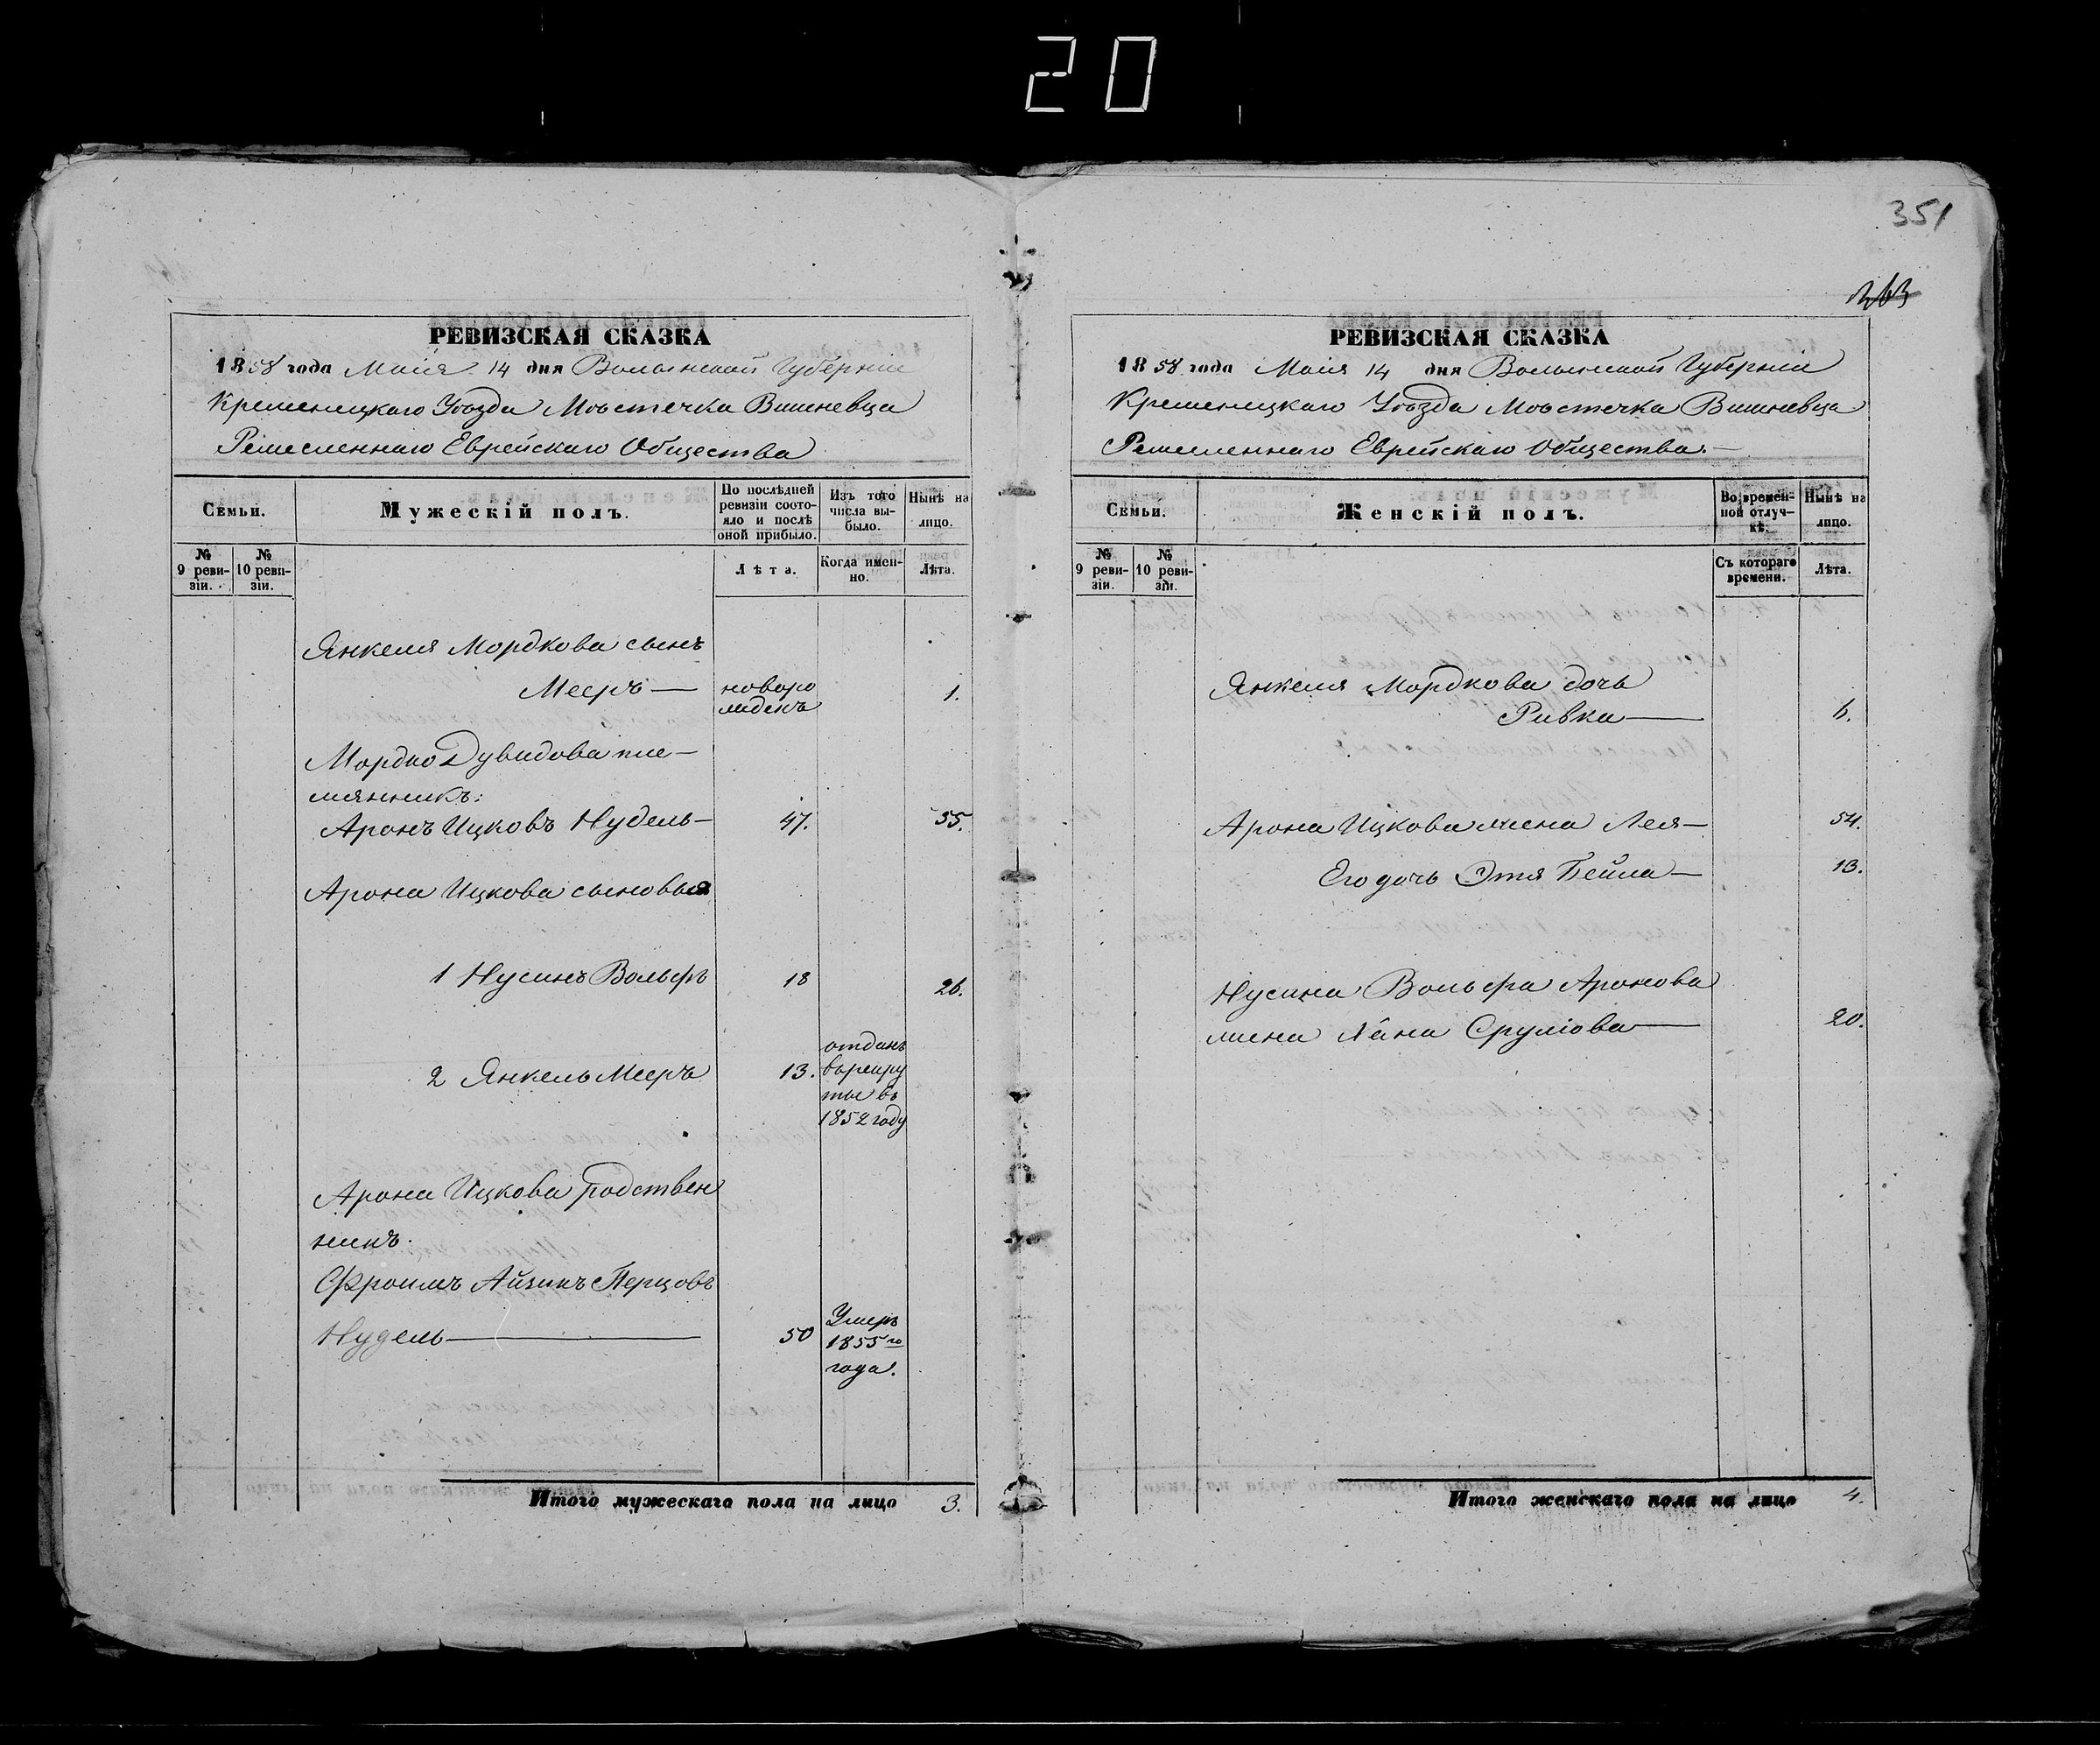 20
351
263
РЕВИЗСКАЯ СКАЗКА
1858 года Маія 14 дня Волынской Губерніи
Кременецкаго Уѣзда Мѣстечка Вишневца
Ремесленнаго Еврейскаго Общества
Семьи.
Мужескій полъ.
По послѣдней ревизіи состояло и послѣ оной прибыло.
Изъ того числа выбыло.
Нынѣ на лицо.
№ 9 ревизіи.
№ 10 ревизіи.
Лѣта.
Когда именно.
Лѣта.
Янкеля Мордкова сынъ
Мееръ — новорожденъ 1.
Мордко Дувидова пле-
мянникъ:
Аронъ Ицковъ Нудель — 47. 55.
Арона Ицкова сыновья
1 Нусинъ Вольфъ 18 26.
2 Янкель Мееръ 13. отданъ в рекруты въ 1852 году
Арона Ицкова родствен
никъ.
Фроимъ Айзикъ Перцовъ
Нудель — 50 Умеръ 1855го года.
Итого мужескаго пола на лицо 3.
РЕВИЗСКАЯ СКАЗКА
1858 года Маія 14 дня Волынской Губерніи
Кременецкаго Уѣзда Мѣстечка Вишневца
Ремесленнаго Еврейскаго Общества. —
Семьи.
Женскій полъ.
Во временной отлучкѣ.
Нынѣ на лицо.
№ 9 ревизіи.
№ 10 ревизіи.
Съ котораго времени.
Лѣта.
Янкеля Мордкова дочь
Ривка — 6.
Арона Ицкова жена Лея — 54.
Его дочь Этя Бейла — 13.
Нусина Вольфа Аронова
жена Сруліова — 20.
Итого женскаго пола на лицо 4.